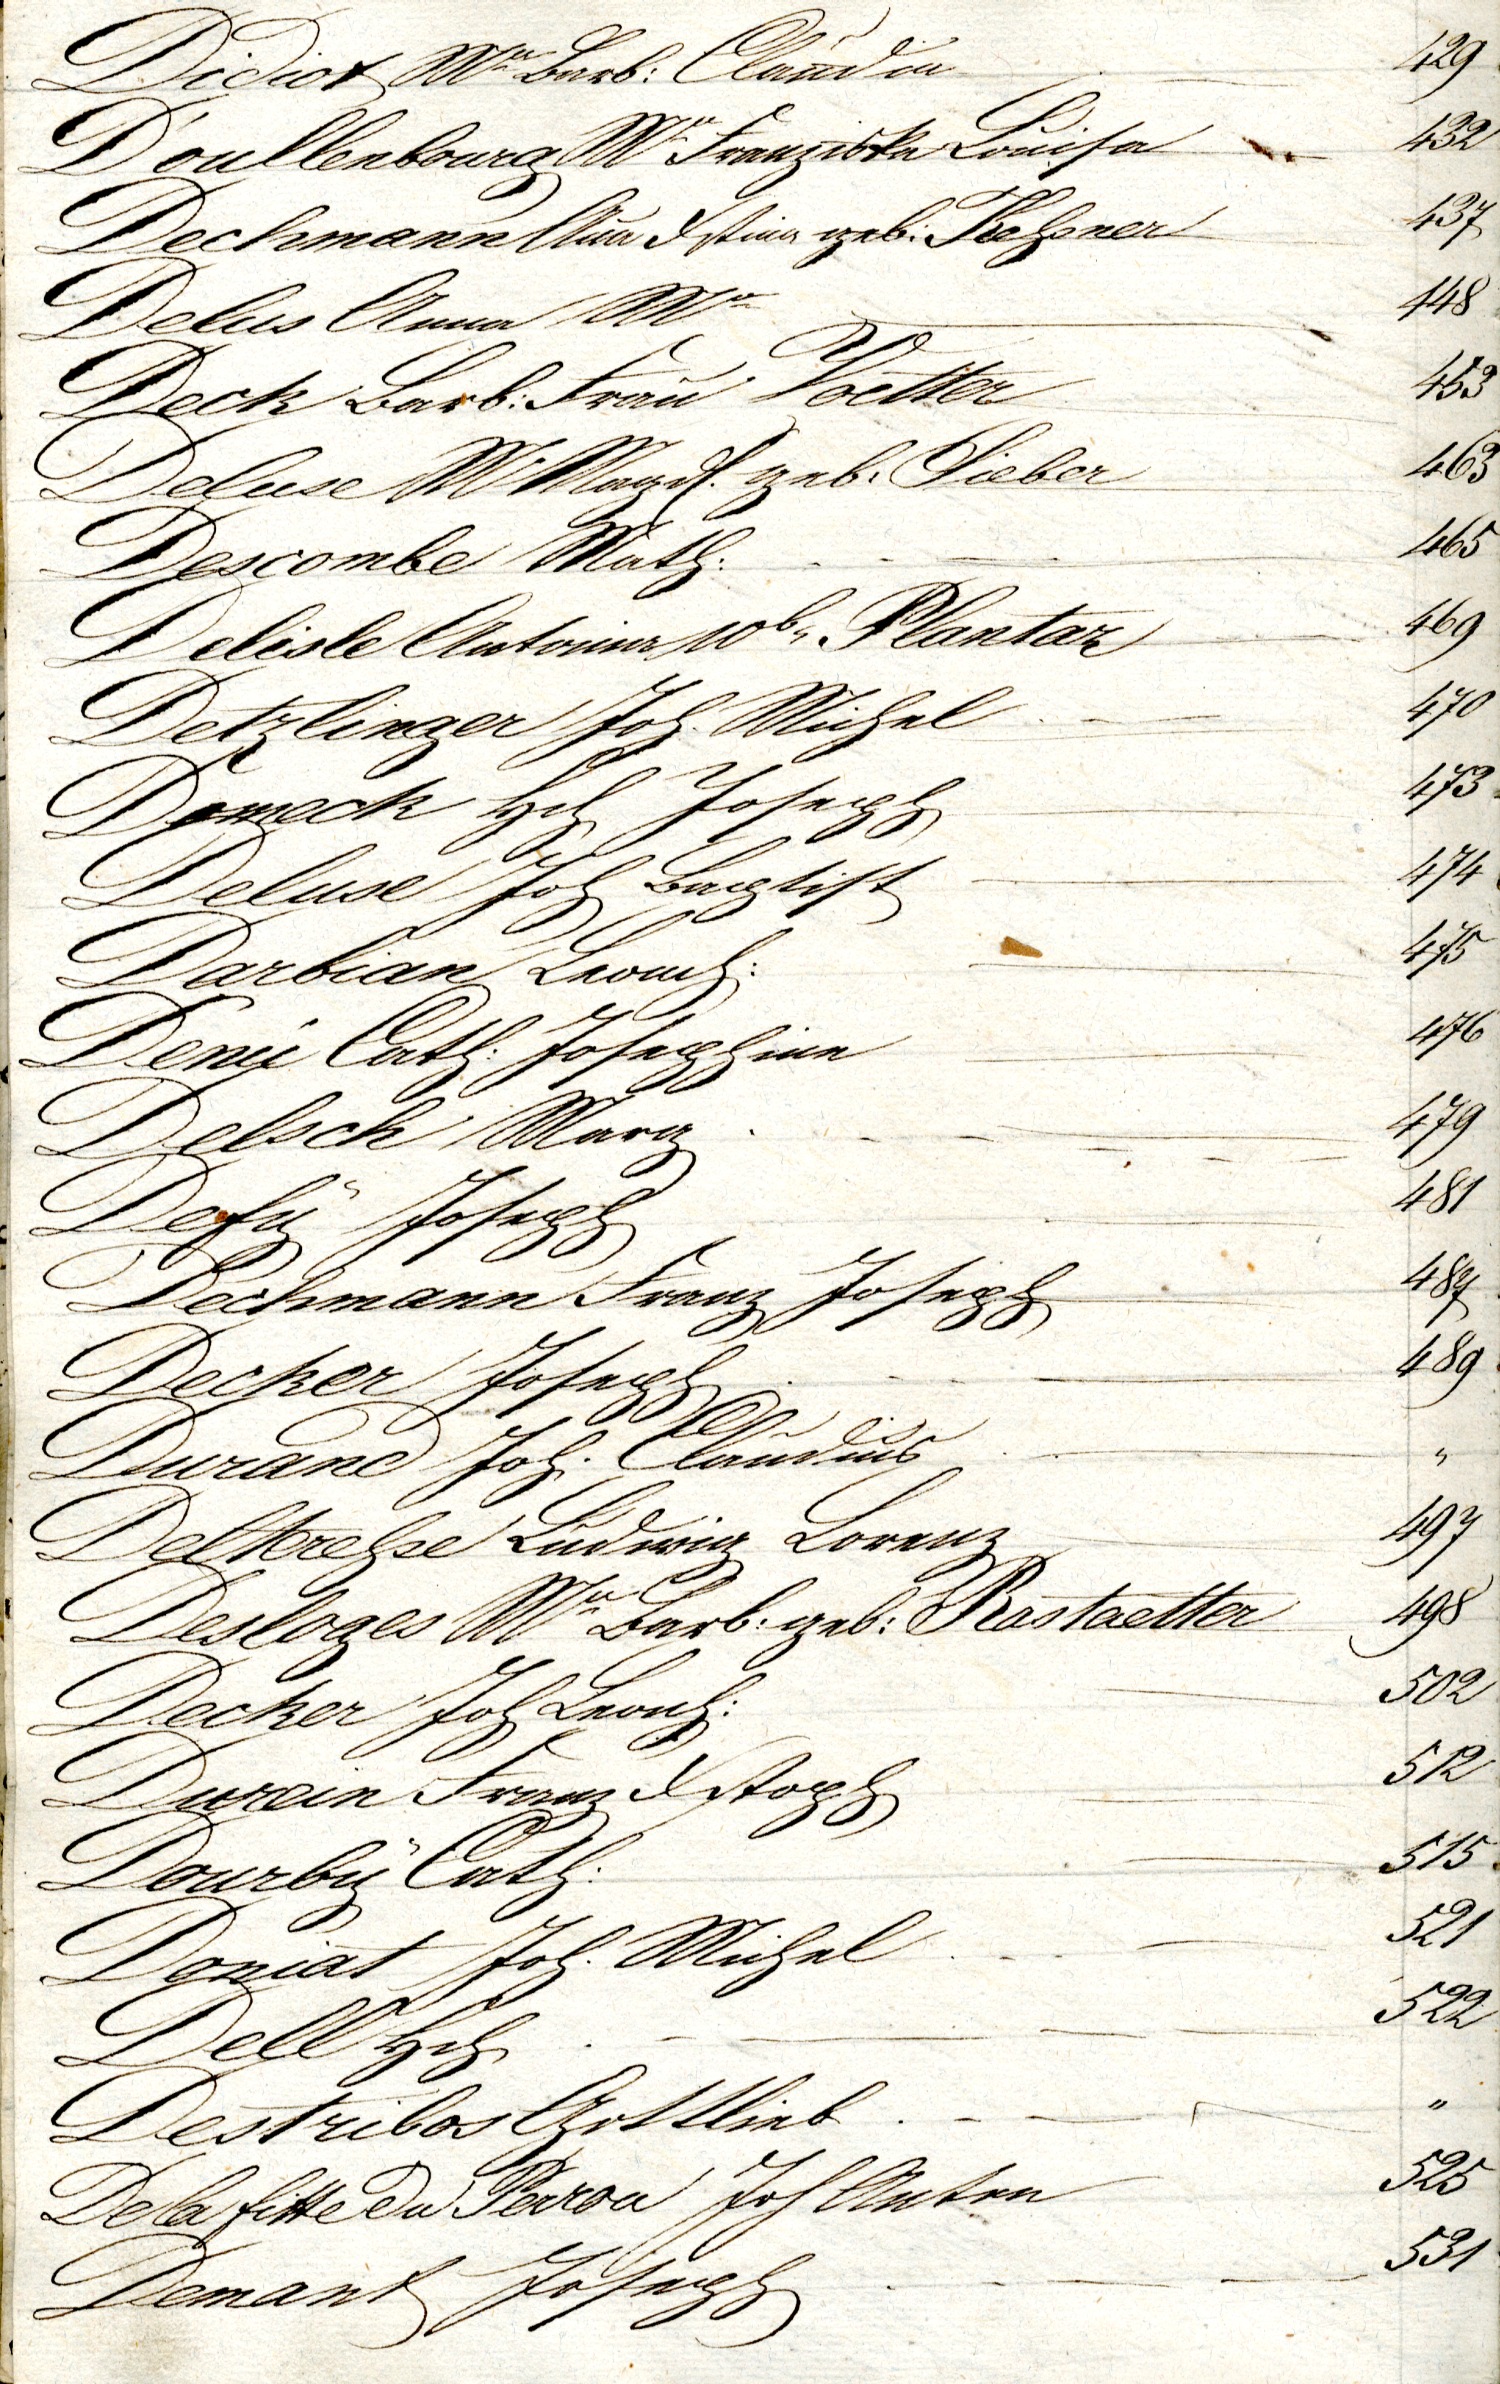 Didiot Mᵃ Barb: Claudia 429
D'oullenbourg Mᵃ Franziska Louisa 432
Dechmann Anna Xstina geb: 437
Delus Anna Mᵃ 448
Deck Barb: Frau Voetter 453
Deluse Mᵃ Magd. geb. Sieber 463
Descombe Math: 465
Delisle Antonia Plantaz 469
Detzlinger Joh. Michel 470
Domeck Hch Joseph 473
Deluse Joh Baptist 474
Darbian Leonh: 475
Denÿ Cath: Josephine 476
Delsch Marg 479
Defÿ Joseph 481
Dechmann Franz Joseph 487
Decker Joseph 489
Durand Joh. Claudius "
Ludwig Lorenz 497
Desloges Mᵃ Barb: geb: Rastaetter 498
Decker Joh Leonh: 502
Franz Xstoph 512
Dourbÿ Cath: 515
Doniat Joh. Michel 521
Dell Hch 522
Destribos Gottlieb "
De la fitte du Perron Joh Anton 525
Demant Joseph 531